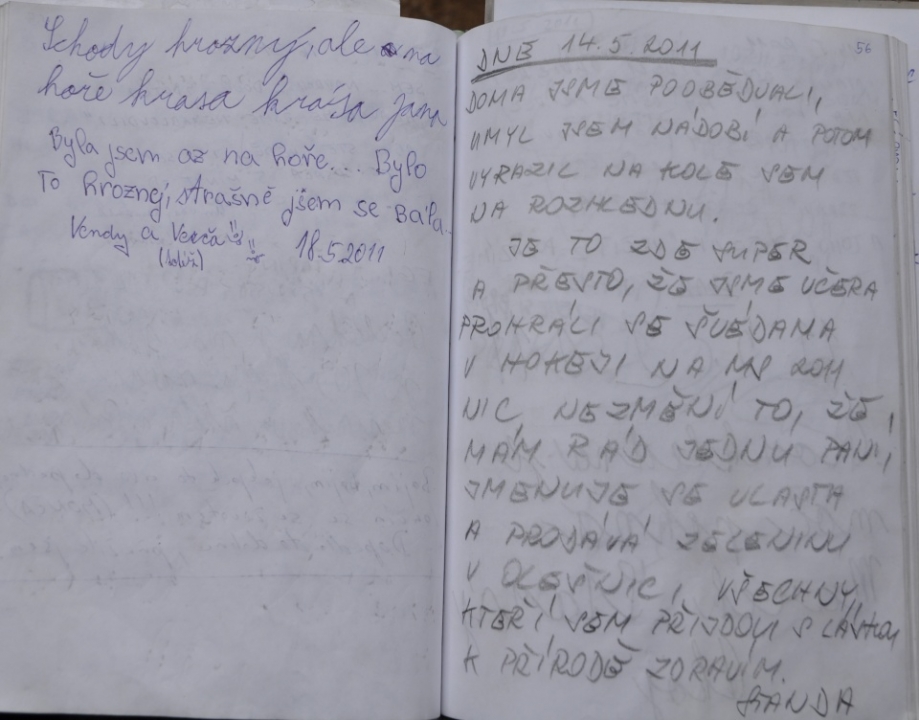 Schody hrozný, ale na
hoře krasa krása jana
Byla jsem az na hoře... Bylo
To hroznej, strašně jsem se Bála..
Vendy a Verča 18.5.2011
56
DNE 14.5.2011
DOMA JSME POOBĚDVALI,
UMYL JSEM NÁDOBÍ A POTOM
VYRAZIL NA KOLE SEM
NA ROZHLEDNU.
JE TO ZDE SUPER
A PŘESTO, ŽE JSME VČERA
PROHRÁLI SE ŠVÉDAMA
V HOKEJI NA MS 2011
NIC NEZMĚNÍ TO, ŽE
MÁM RÁD JEDNU PANÍ,
JMENUJE SE VLASTA
A PRODÁVÁ ZELENINU
V OLEŠNICI, VŠECHNY,
KTEŘÍ SEM PŘIJDOU S LÁSKOU
K PŘÍRODĚ ZDRAVÍM.
STANDA